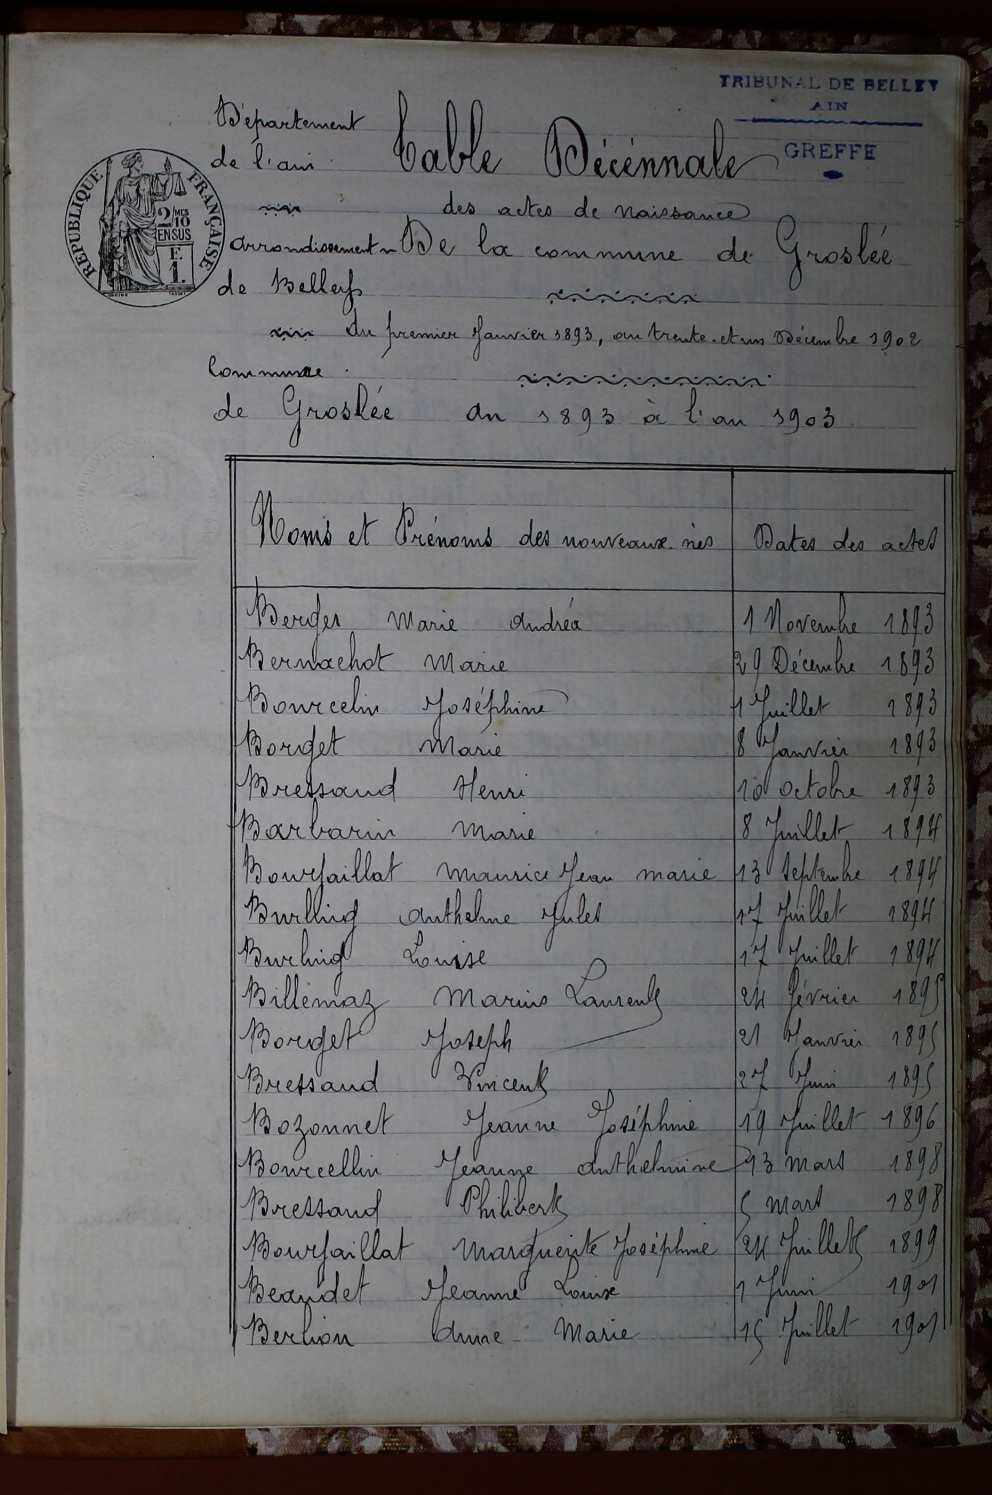 TRIBUNAL DE BELLEY
AIN
GREFFE
Département
de l'ain
Table Décénnale
RÉPUBLIQUE FRANÇAISE
2/10 MES
EN SUS
F.
1
des actes de naissance
arrondissement
De la commune de Groslée
de Belley
Du premier Janvier 1893, au trente-et-un Décembre 1902
Commune
de Groslée
an 1893 à l'an 1903
Noms et Prénoms des nouveaux-nés
Dates des actes
Berger Marie Andréa 1 Novembre 1893
Bernachot Marie 29 Décembre 1893
Bourcelin Joséphine 1 Juillet 1893
Borget Marie 8 Janvier 1893
Bressand Henri 10 octobre 1893
Barbarin Marie 8 Juillet 1894
Bourjaillat Maurice Jean marie 13 Septembre 1894
Burlling Anthelme Jules 17 Juillet 1894
Burling Louise 17 Juillet 1894
Billémaz Marius Laurent 24 février 1895
Borget Joseph 21 Janvier 1895
Bressand Vincent 27 Juin 1895
Bozonnet Jeanne Joséphine 19 Juillet 1896
Bourcellin Jeanne Anthelmine 13 mars 1898
Bressand Philibert 5 mars 1898
Bourjaillat Marguerite Joséphine 24 Juillet 1899
Beaudet Jeanne Louise 1 Juin 1901
Berlion Anne Marie 15 Juillet 1901